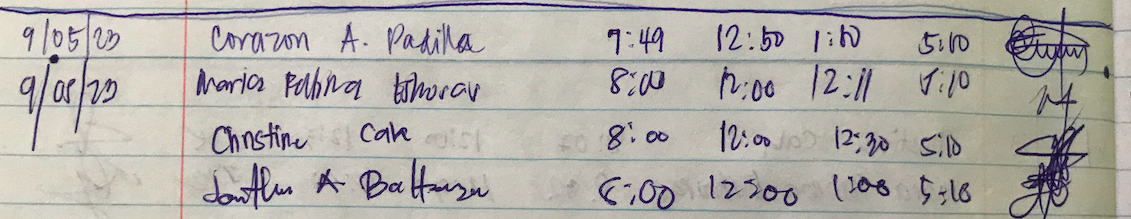 9/05/23 Corazon A. Padilla 7:49 12:50 1:50 5:10
9/05/23 Maria 8:00 12:00 12:11 5:10
Christine Cale 8:00 12:00 12:30 5:10
A 8:00 12:00 1:00 5:10